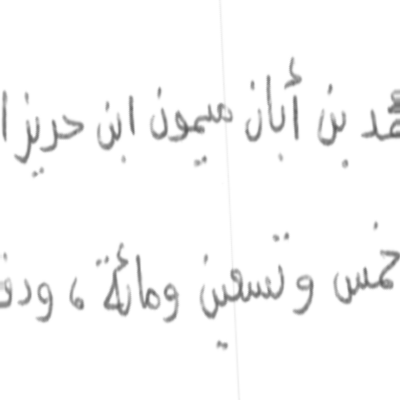 بن أبان ميمون ابن حريز
خمس وتسعين ومائة ، ودف